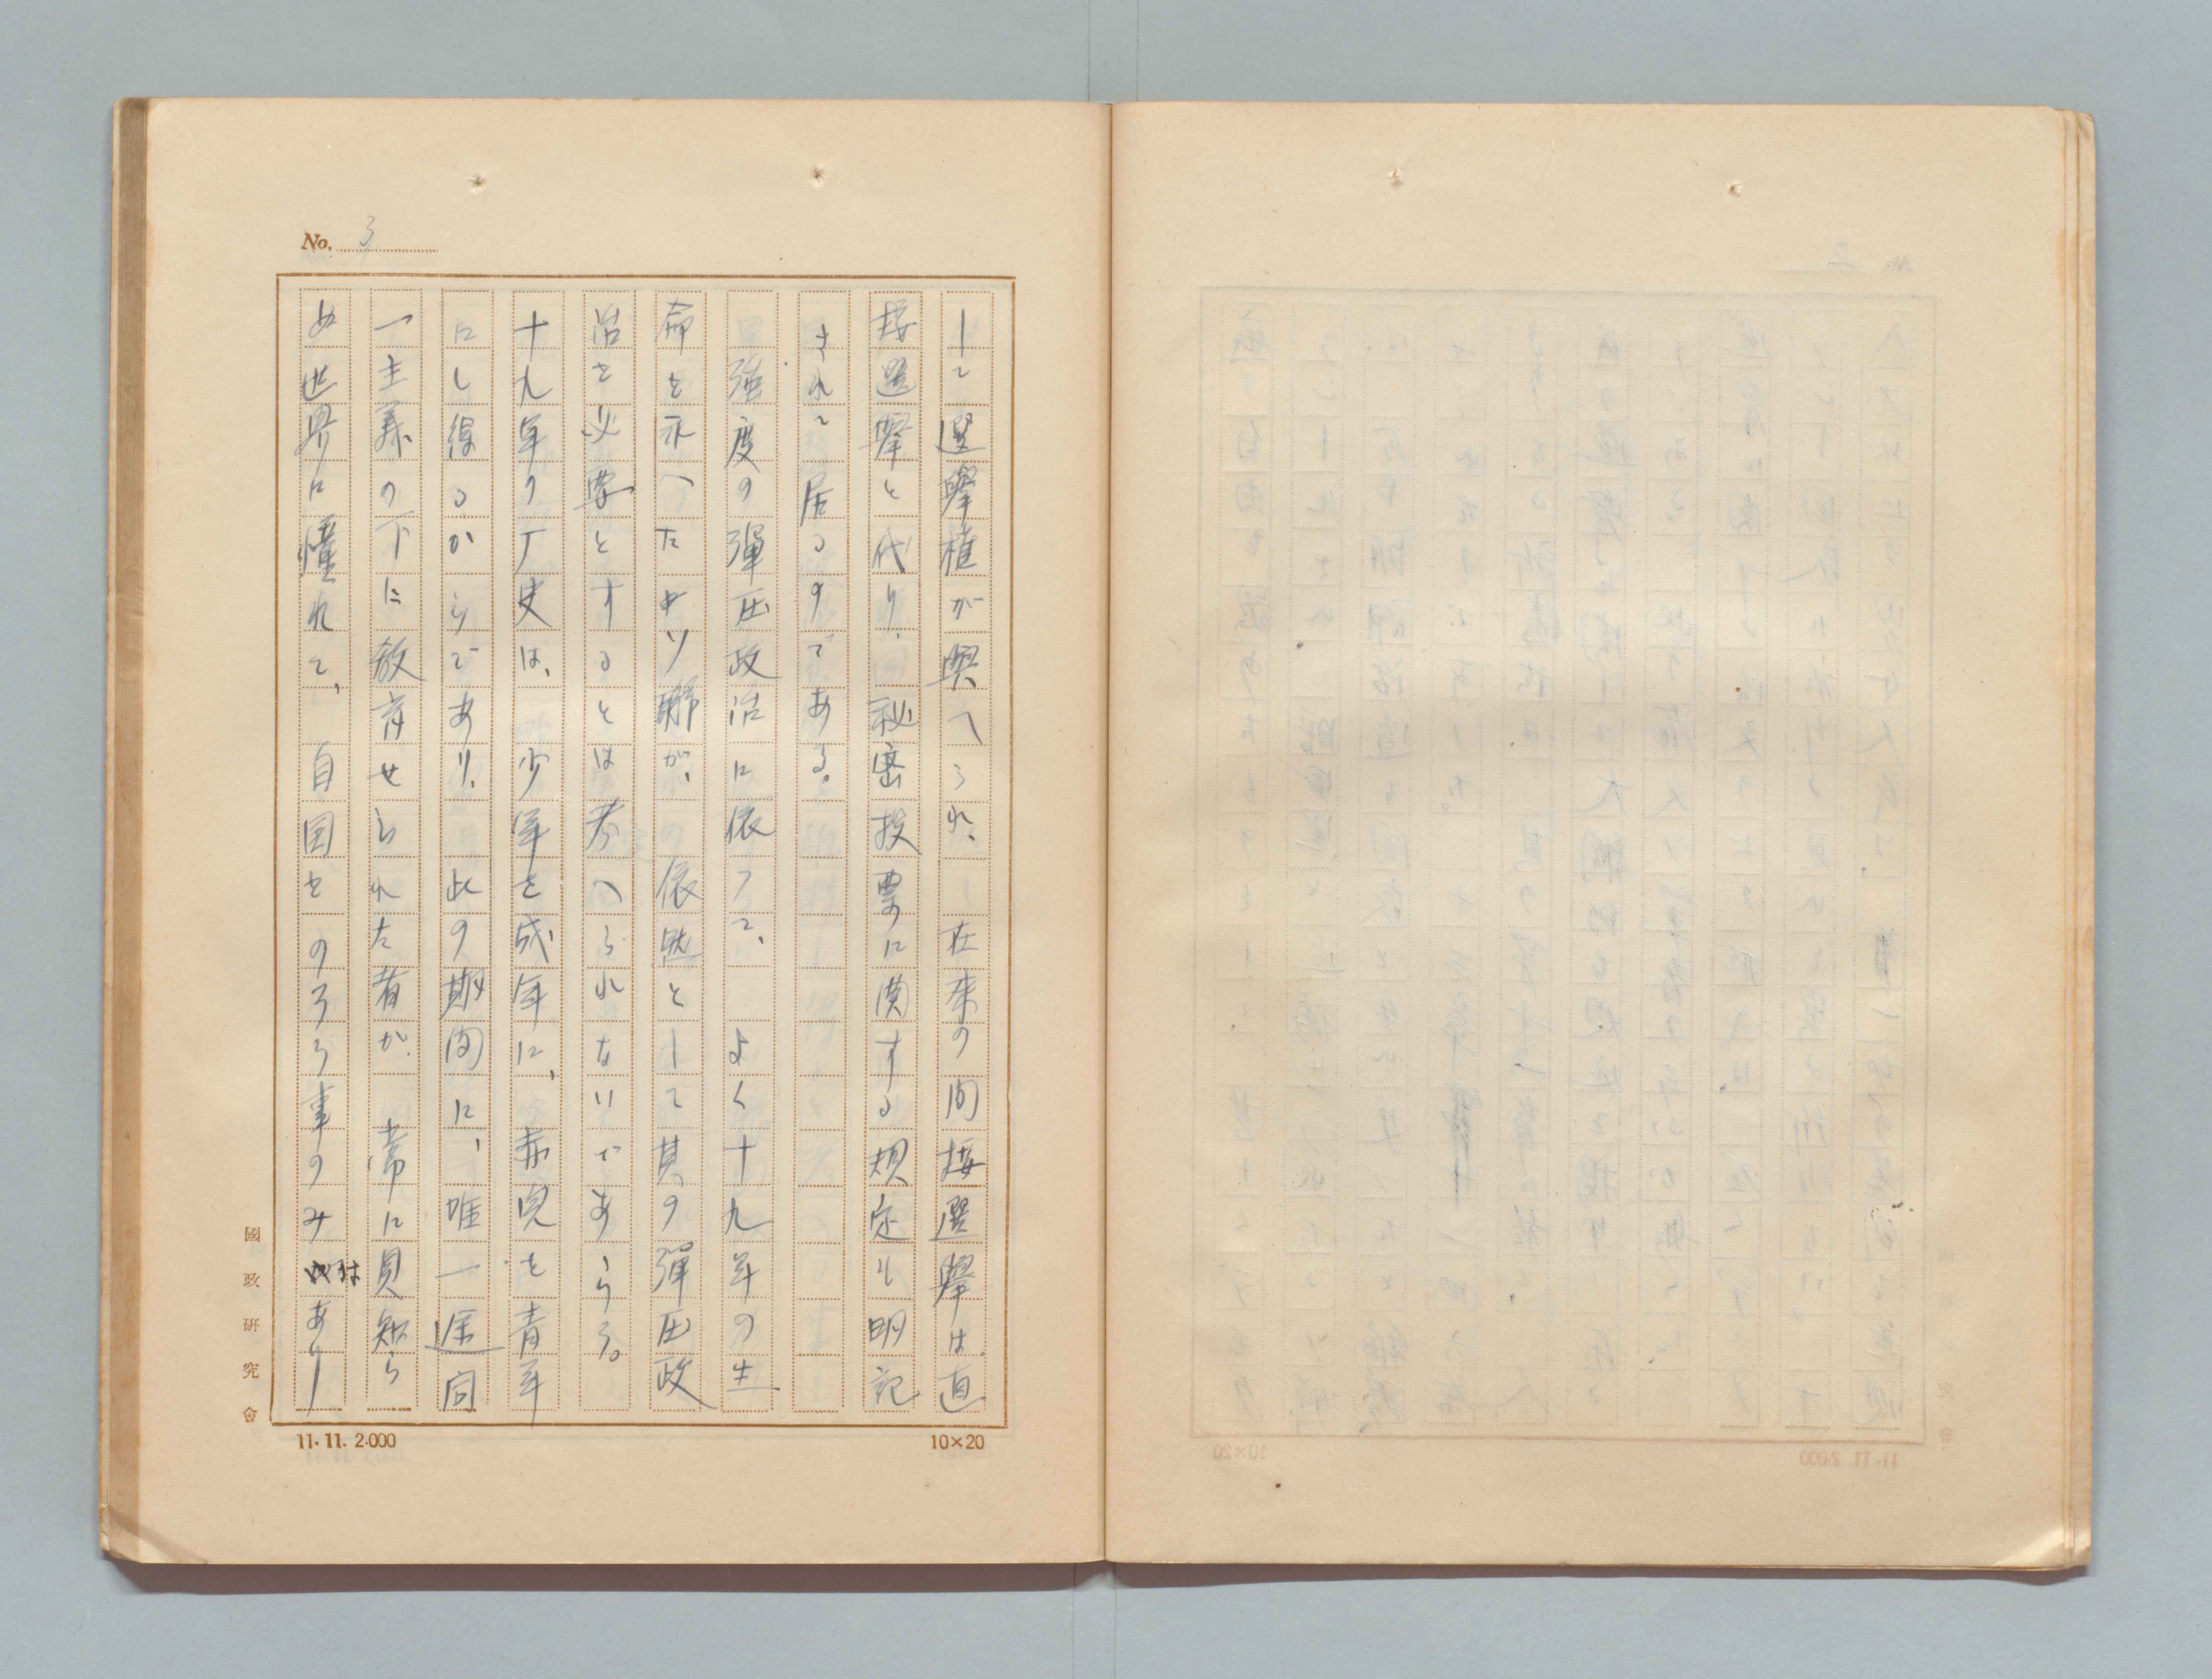 No. 3
して選擧権が與へられ、在来の間接選擧は直
接選擧と代り、秘密投票に関する規定も明記
されて居るのである。
強度の彈圧政治に依つて、よく十九年の生
命を永へたサソ聯が、依然として其の彈圧政
治を必要とするとは考へられないであらう。
十九年の厂史は、少年を成年に、赤児を青年
にし得るからであり、此の期間に、唯一途同
一主義の下に教育せられた者が、常に見知ら
ぬ世界に憧れて、自国をのろふ事のみはあり
國政研究會
11. 11. 2.000
10×20